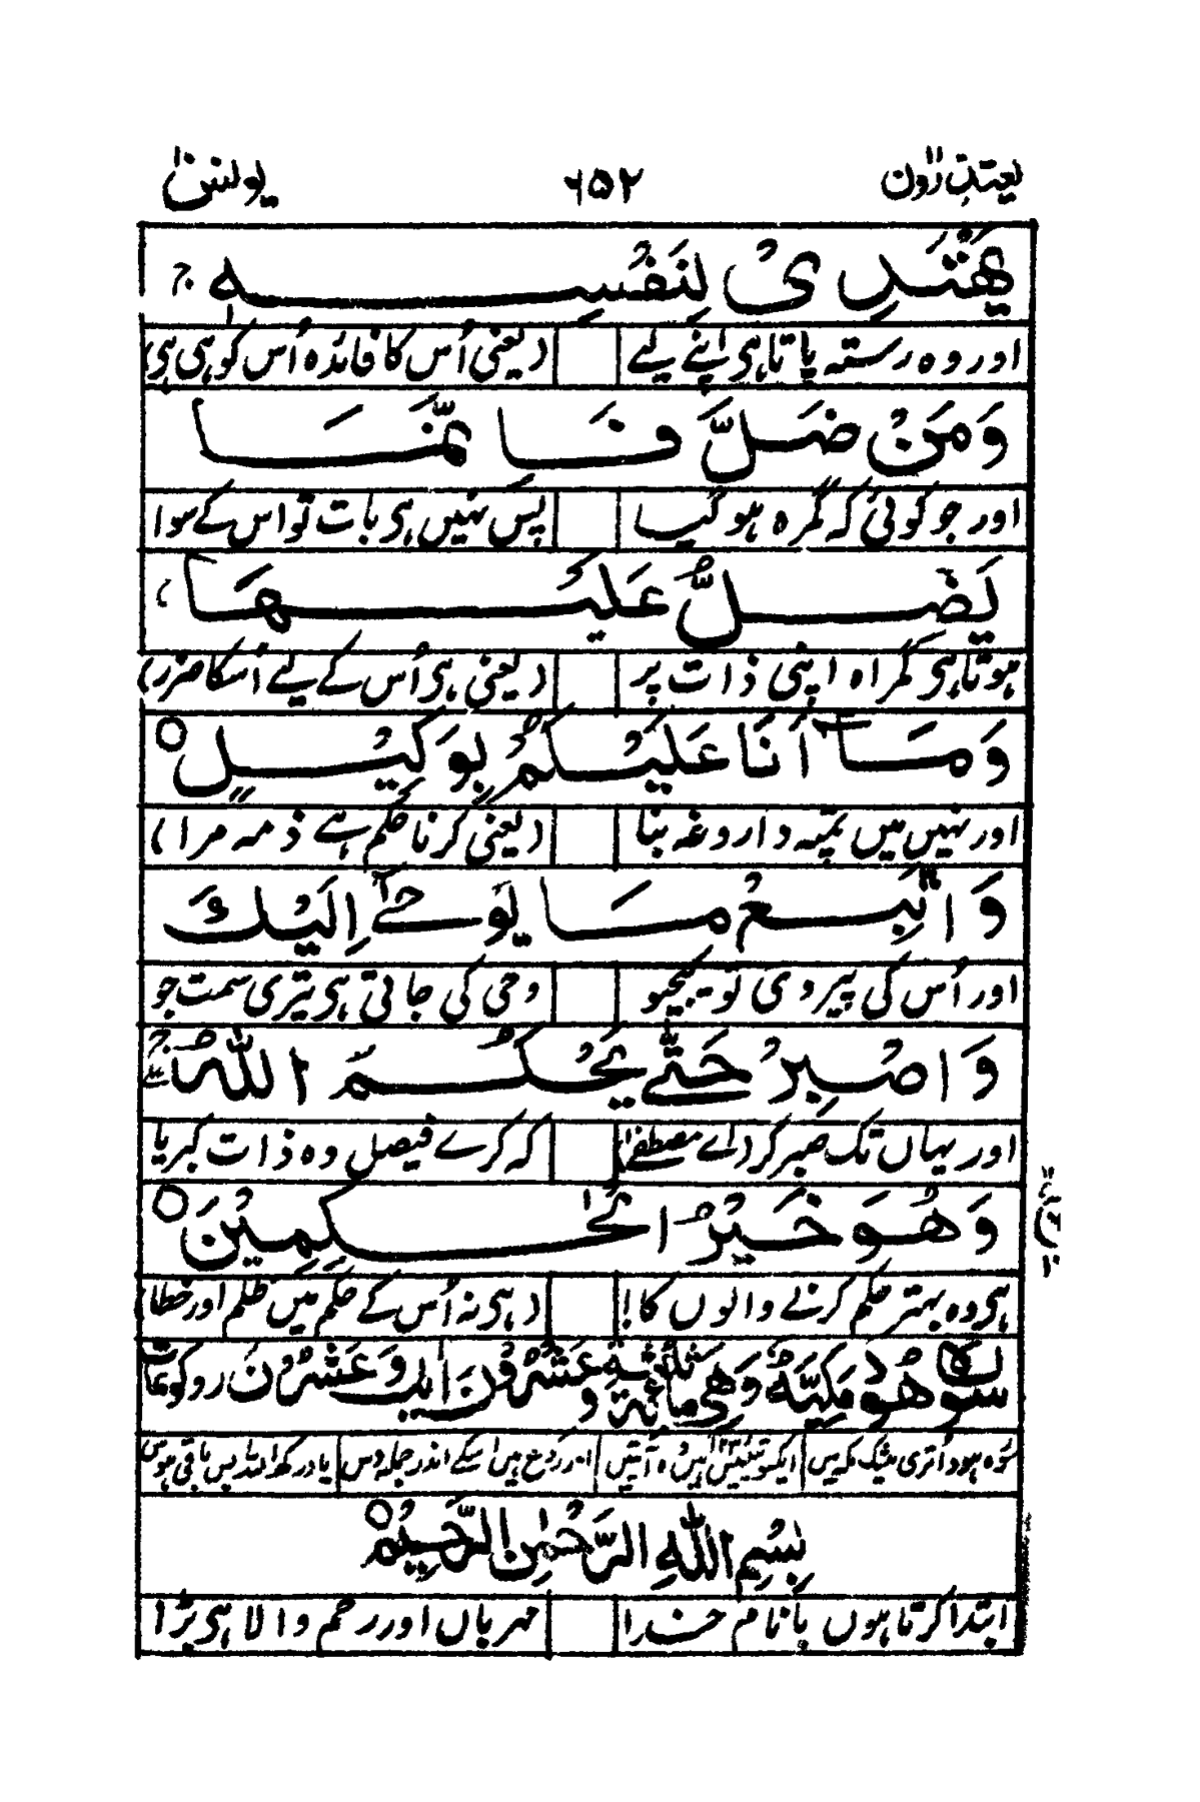 یعتذرون ۱۱ ۶۵۲ یونس ۱۰
یَهْتَدِیْ لِنَفْسِهٖ ج
اور وہ رستہ پاتا ہی اپنے لیے (یعنی اُس کا فائدہ اُس کو ہی ہی)
وَمَنْ ضَلَّ فَاِنَّمَا
اور جو کوئی کہ گمرہ ہو گیا پس نہیں ہی بات تو اس کے سوا
یَضِلُّ عَلَیْهَا ج
ہوتا ہی گمراہ اپنی ذات پر (یعنی ہی اُس کے لیے اُسکا ضرر)
وَمَآ اَنَا عَلَیْكُمْ بِوَكِیْلٍ ○
اور نہیں میں تمپہ داروغہ بنا (یعنی کرنا حکم ہے ذمہ مرا)
وَاتَّبِعْ مَا یُوْحٰٓی اِلَیْكَ
اور اُس کی پیروی تو کیجیو وحی کی جاتی ہی تیری سمت جو
وَاصْبِرْ حَتّٰی یَحْكُمَ اللّٰهُ ج
اور یہاں تک صبر کر (اے مصطفےٰ) کہ کرے فیصل وہ ذات کبریا
وَهُوَ خَیْرُ الْحٰكِمِیْنَ ○
ہی وہ بہتر حکم کرنے والوں کا! (ہی نہ اُس کے حکم میں ظلم اور خطا)
سورة هُوْد مَكِیَّةٌ وَهِیَ مِائَةٌ وَّ ثَلٰثَةٌ وَّعِشْرُوْنَ اٰیٰت وَّعَشْرُ رکوعات
سورہ ہود اُتری بیشک مکہ میں ایکسو تیئیس ہیں آیتیں اور رکوع ہیں اسکے اندر جملہ دس یاد رکھ اللہ بس باقی ہوس
بِسْمِ اللّٰهِ الرَّحْمٰنِ الرَّحِیْمِ ○
ابتدا کرتا ہوں با نام خدا مہرباں اور رحم والا ہی بڑا